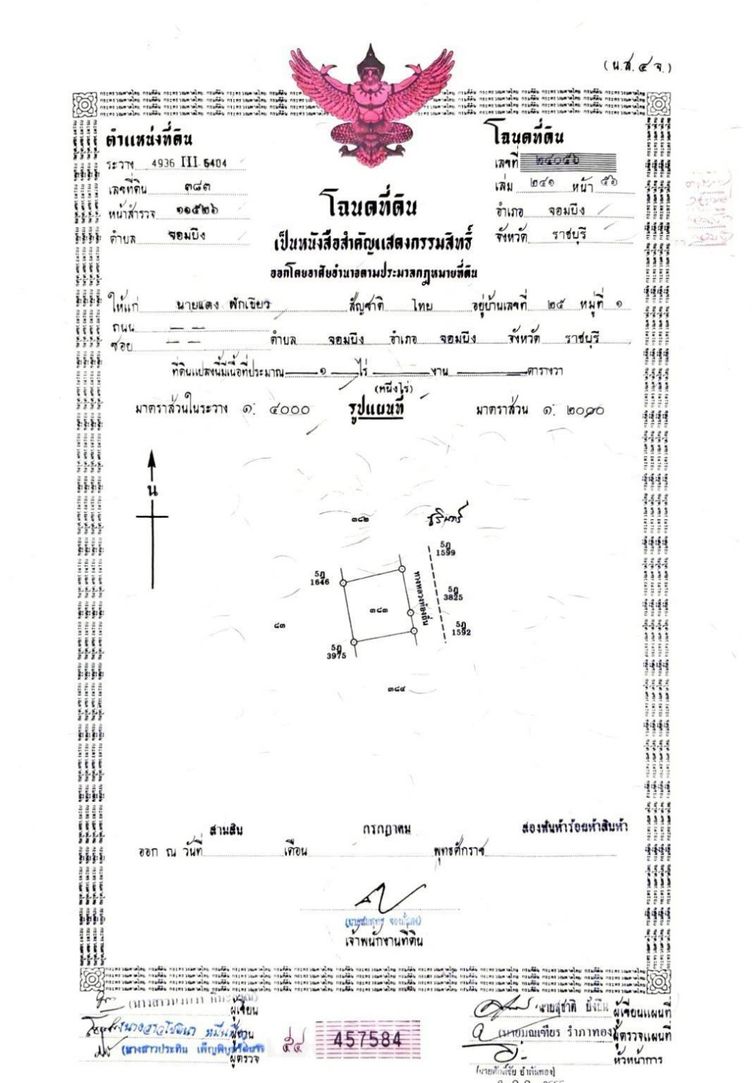 (น.ส. ๔ จ.)
ตำแหน่งที่ดิน
ระวาง 4936 III 6404
เลขที่ดิน ๓๘๓
หน้าสำรวจ ๑๑๕๒๖
ตำบล จอมบึง
โฉนดที่ดิน
เลขที่ ๒๔๐๕๖
เล่ม ๒๔๑ หน้า ๕๖
อำเภอ จอมบึง
จังหวัด ราชบุรี
โฉนดที่ดิน
เป็นหนังสือสำคัญแสดงกรรมสิทธิ์
ออกโดยอาศัยอำนาจตามประมวลกฎหมายที่ดิน
ให้แก่ นายแดง ฟักเขียว สัญชาติ ไทย อยู่บ้านเลขที่ ๒๕ หมู่ที่ ๑
ถนน — —
ซอย — — ตำบล จอมบึง อำเภอ จอมบึง จังหวัด ราชบุรี
ที่ดินแปลงนี้มีเนื้อที่ประมาณ ๑ ไร่ — งาน — ตารางวา
(หนึ่งไร่)
มาตราส่วนในระวาง ๑: ๔๐๐๐ รูปแผนที่ มาตราส่วน ๑: ๒๐๐๐
น
๓๘๒
5ฎ
1599
5ฎ
1646
5ฎ
3825
๓๘๓
ทางหลวงท้องถิ่น
๘๓
5ฎ
1592
5ฎ
3975
๓๘๔
สามสิบ กรกฎาคม สองพันห้าร้อยห้าสิบห้า
ออก ณ วันที่ เดือน พุทธศักราช
เจ้าพนักงานที่ดิน
ผู้เขียน
(นางสาวประทิน
ผู้ตรวจ
457584
นายสุชาติ ผู้เขียนแผนที่
(นายมณเฑียร รำภาทอง) ผู้ตรวจแผนที่
หัวหน้าการ